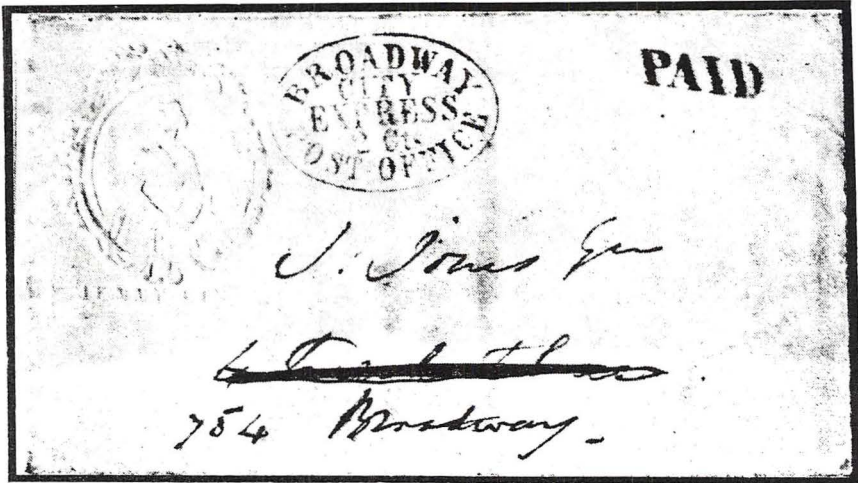 BROADWAY
CITY
EXPRESS
2 cts
POST OFFICE
PAID
J. Jones Esq
754 Broadway.